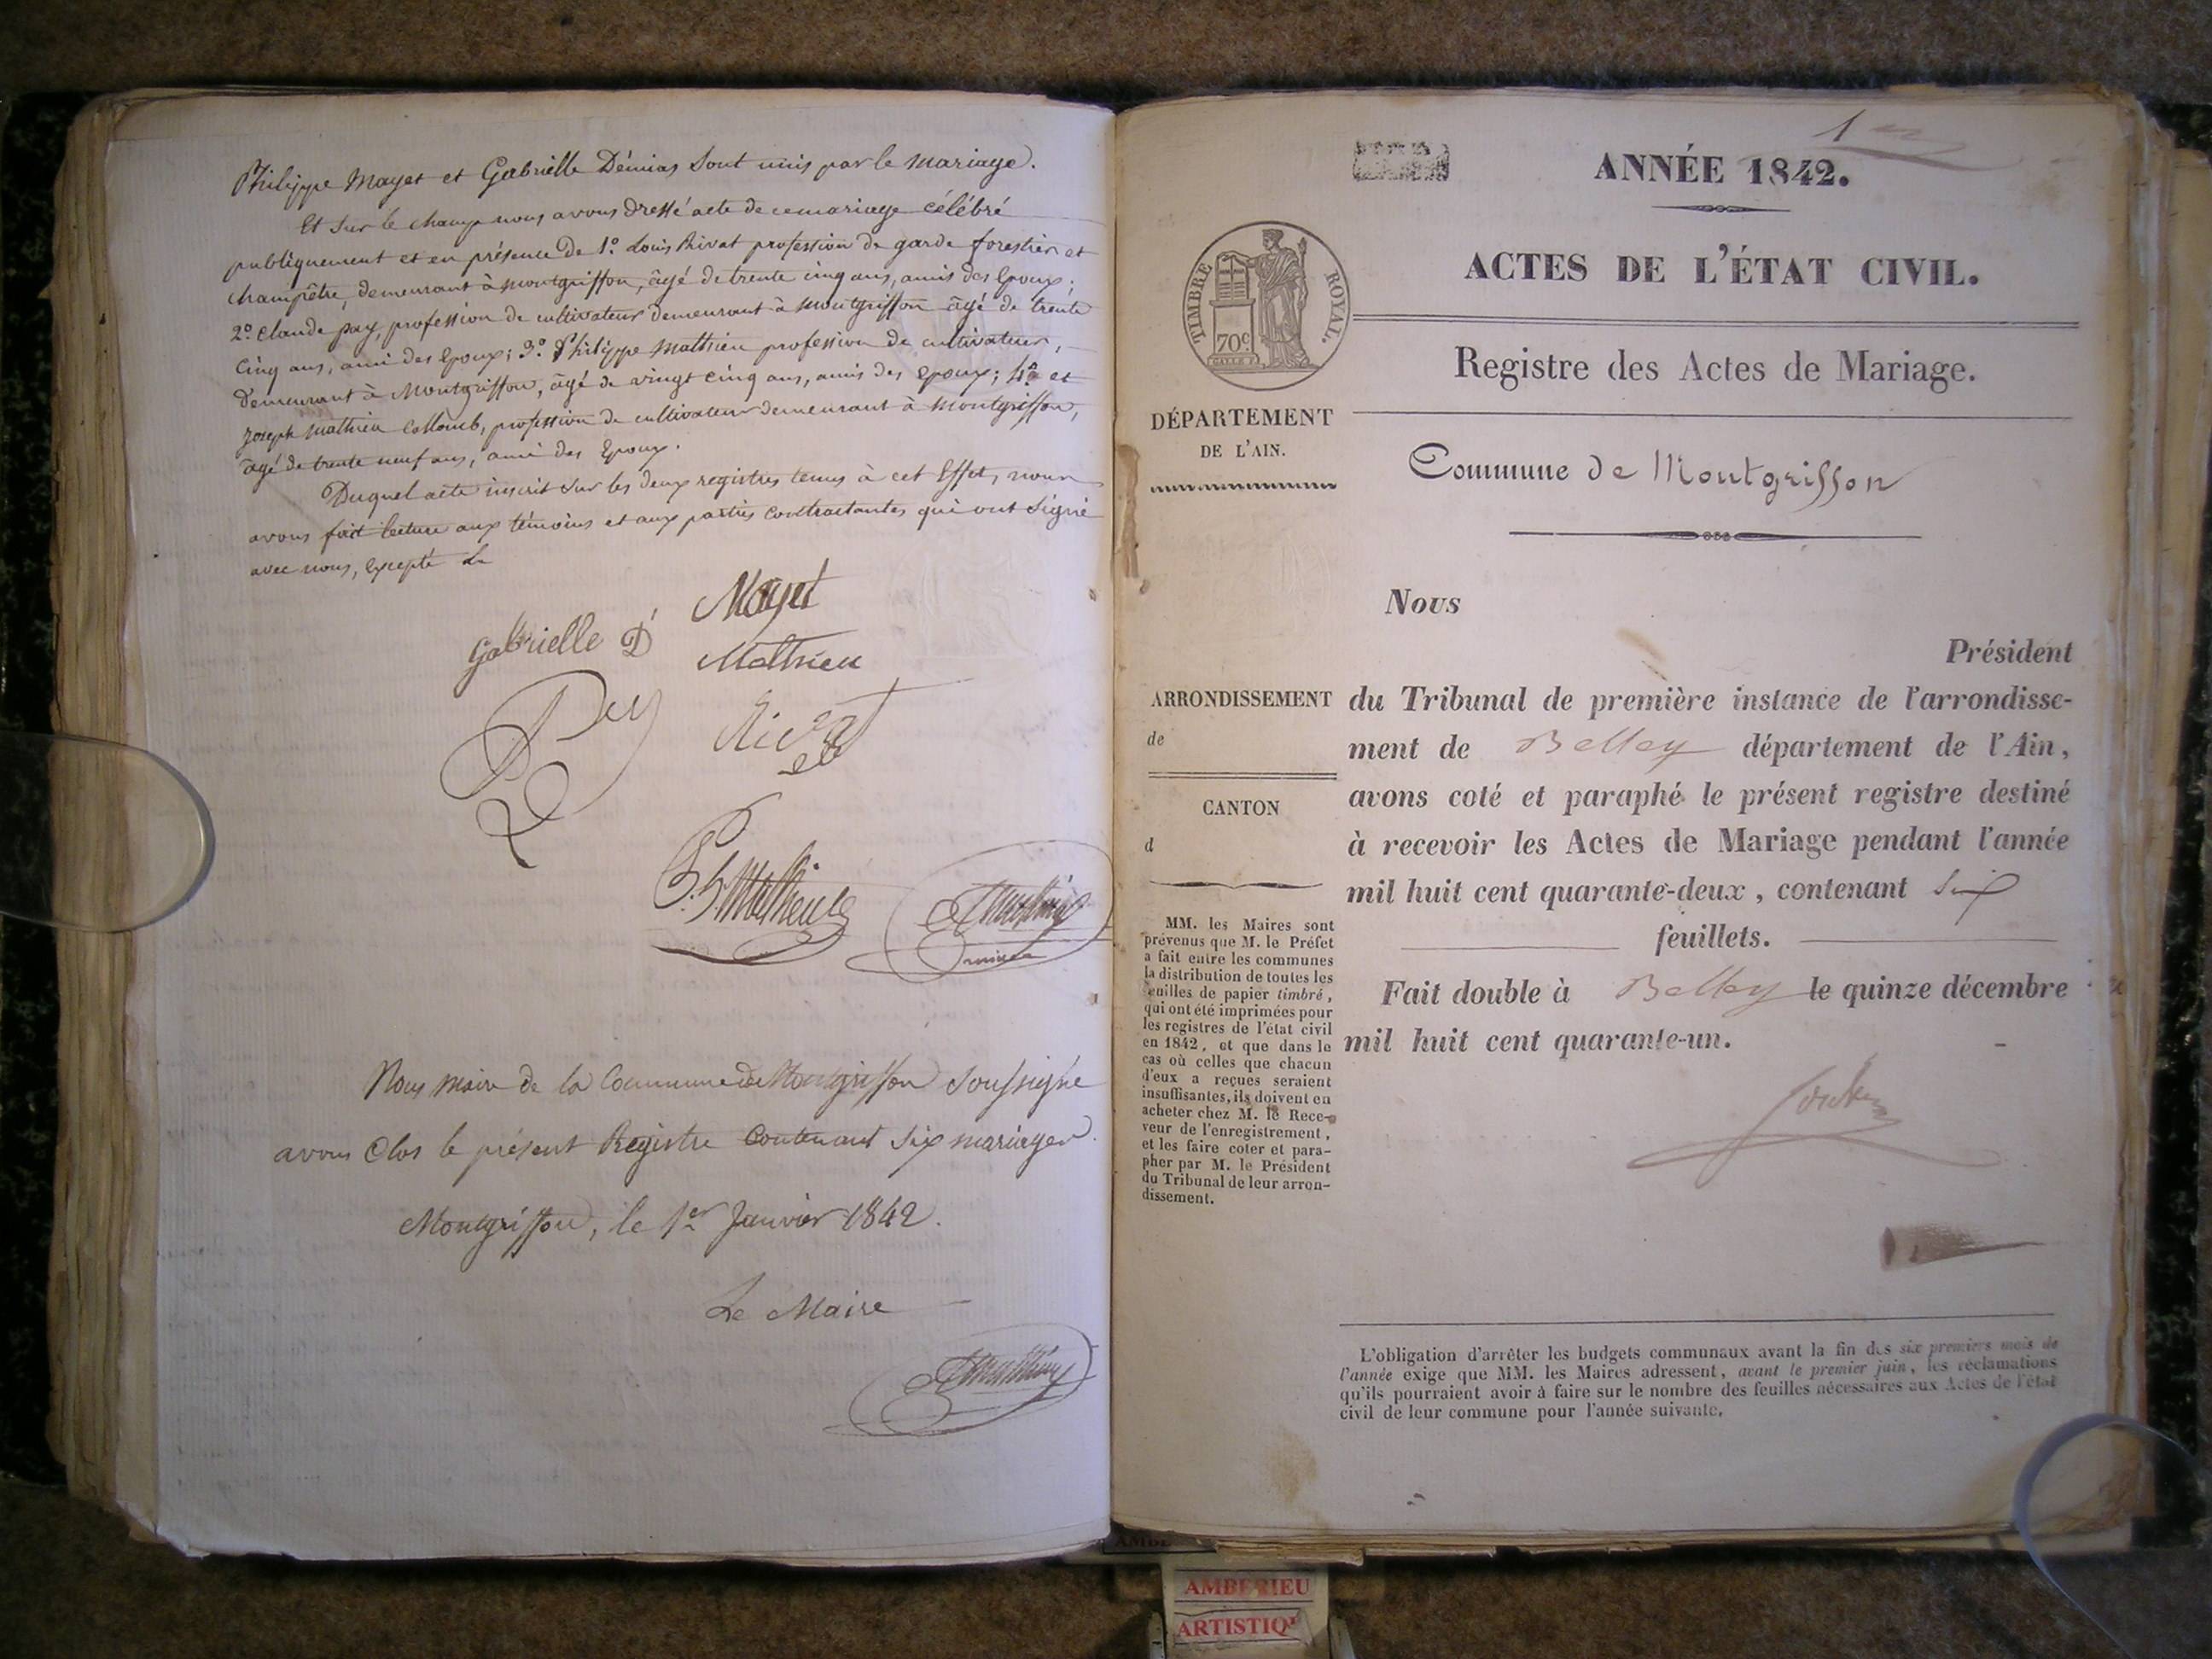 Philippe Mayet et Gabrielle Démias sont unis par le mariage.
Et sur le champ nous avons dressé acte de ce mariage célébré
publiquement et en présence de 1.° Louis Rivat profession de garde forestier et
champêtre, demeurant à montgriffon, âgé de trente cinq ans, amis des époux;
2.° Claude pay, profession de cultivateur demeurant à montgriffon âgé de trente
cinq ans, ami des époux; 3.° Philippe Mathieu profession de cultivateur,
demeurant à Montgriffon, âgé de vingt cinq ans, amis des époux; 4.° et
joseph mathieu Collomb, profession de cultivateur demeurant à montgriffon,
âgé de trente neuf ans, ami des époux.
Duquel acte inscrit sur les deux registres tenus à cet effet, nous
avons fait lecture aux témoins et aux parties contractantes qui ont signé
avec nous, excepté le
Mayet
Gabrielle D
Mathieu
Pey
Rivat
Ph. Mathieu
Nous maire de la Commune de Montgriffon soussigné
avons Clos le présent Registre Contenant six mariages.
Montgriffon, le 1er Janvier 1842.
Le Maire
1er
ANNÉE 1842.
ACTES DE L'ÉTAT CIVIL.
Registre des Actes de Mariage.
Commune de Montgriffon
TIMBRE ROYAL.
70c
DÉPARTEMENT
DE L'AIN.
ARRONDISSEMENT
de
CANTON
d
MM. les Maires sont
prévenus que M. le Préfet
a fait entre les communes
la distribution de toutes les
feuilles de papier timbré,
qui ont été imprimées pour
les registres de l'état civil
en 1842, et que dans le
cas où celles que chacun
d'eux a reçues seraient
insuffisantes, ils doivent en
acheter chez M. le Rece-
veur de l'enregistrement,
et les faire coter et para-
pher par M. le Président
du Tribunal de leur arron-
dissement.
Nous
Président
du Tribunal de première instance de l'arrondisse-
ment de Belley département de l'Ain,
avons coté et paraphé le présent registre destiné
à recevoir les Actes de Mariage pendant l'année
mil huit cent quarante-deux, contenant six
feuillets.
Fait double à Belley le quinze décembre
mil huit cent quarante-un.
L'obligation d'arrêter les budgets communaux avant la fin des six premiers mois de
l'année exige que MM. les Maires adressent, avant le premier juin, les réclamations
qu'ils pourraient avoir à faire sur le nombre des feuilles nécessaires aux Actes de l'état
civil de leur commune pour l'année suivante.
AMBERIEU
ARTISTIQ